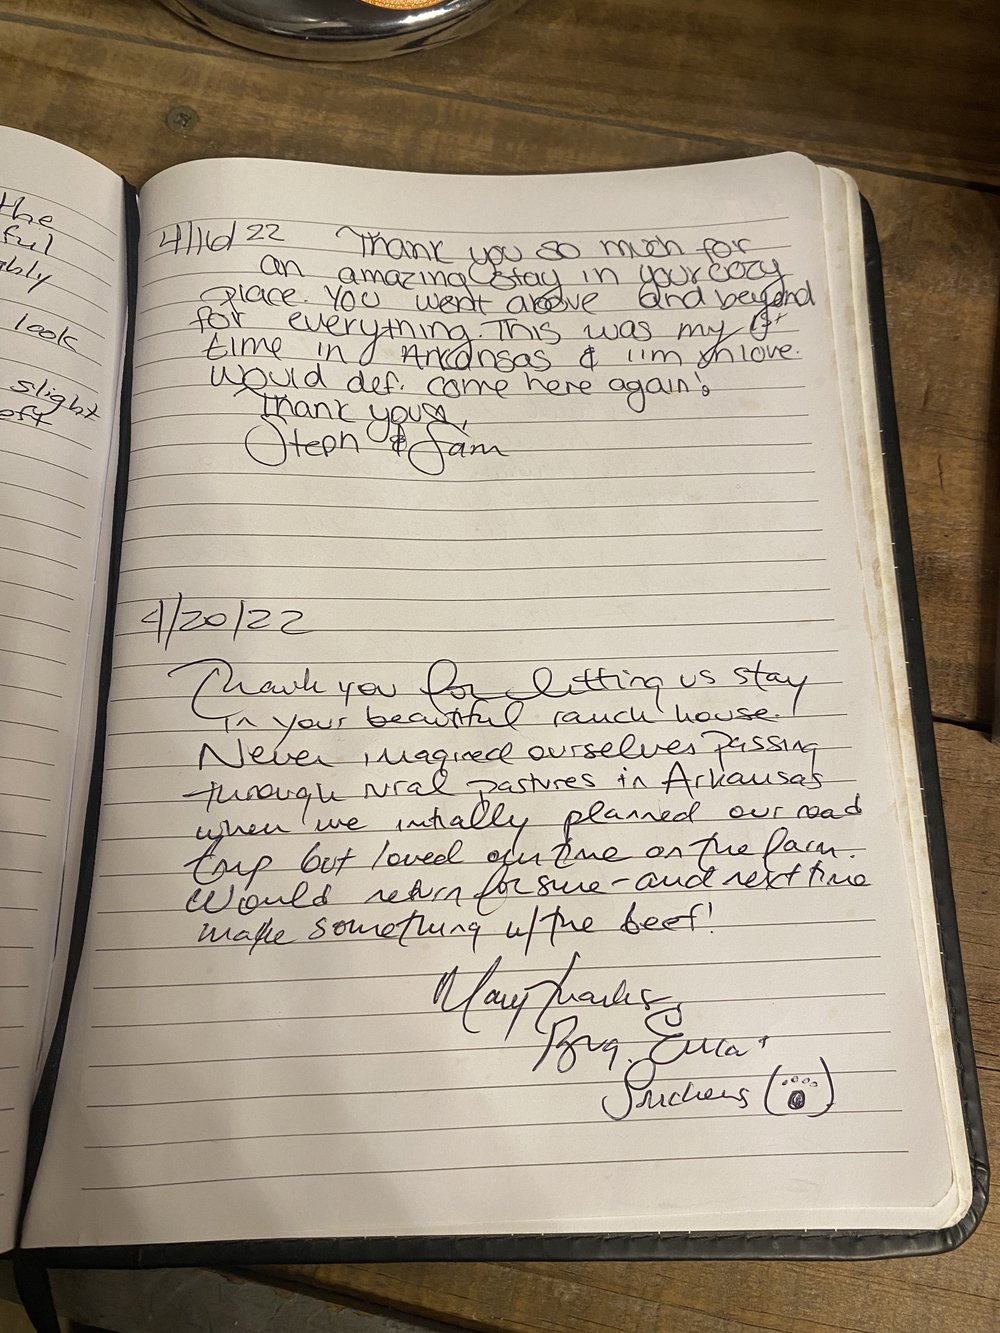 the
ful
look
slight
4/16/22 Thank you so much for
an amazing stay in your cozy
place. You went above and beyond
for everything. This was my 1st
time in Arkansas & I'm in love.
Would def. come here again!
Thank you,
Steph & Sam
4/20/22
Thank you for letting us stay
in your beautiful ranch house.
Never imagined ourselves passing
through rural pastures in Arkansas
when we initially planned our road
trip but loved our time on the farm.
Would return for sure - and next time
make something w/ the beef!
Many thanks,